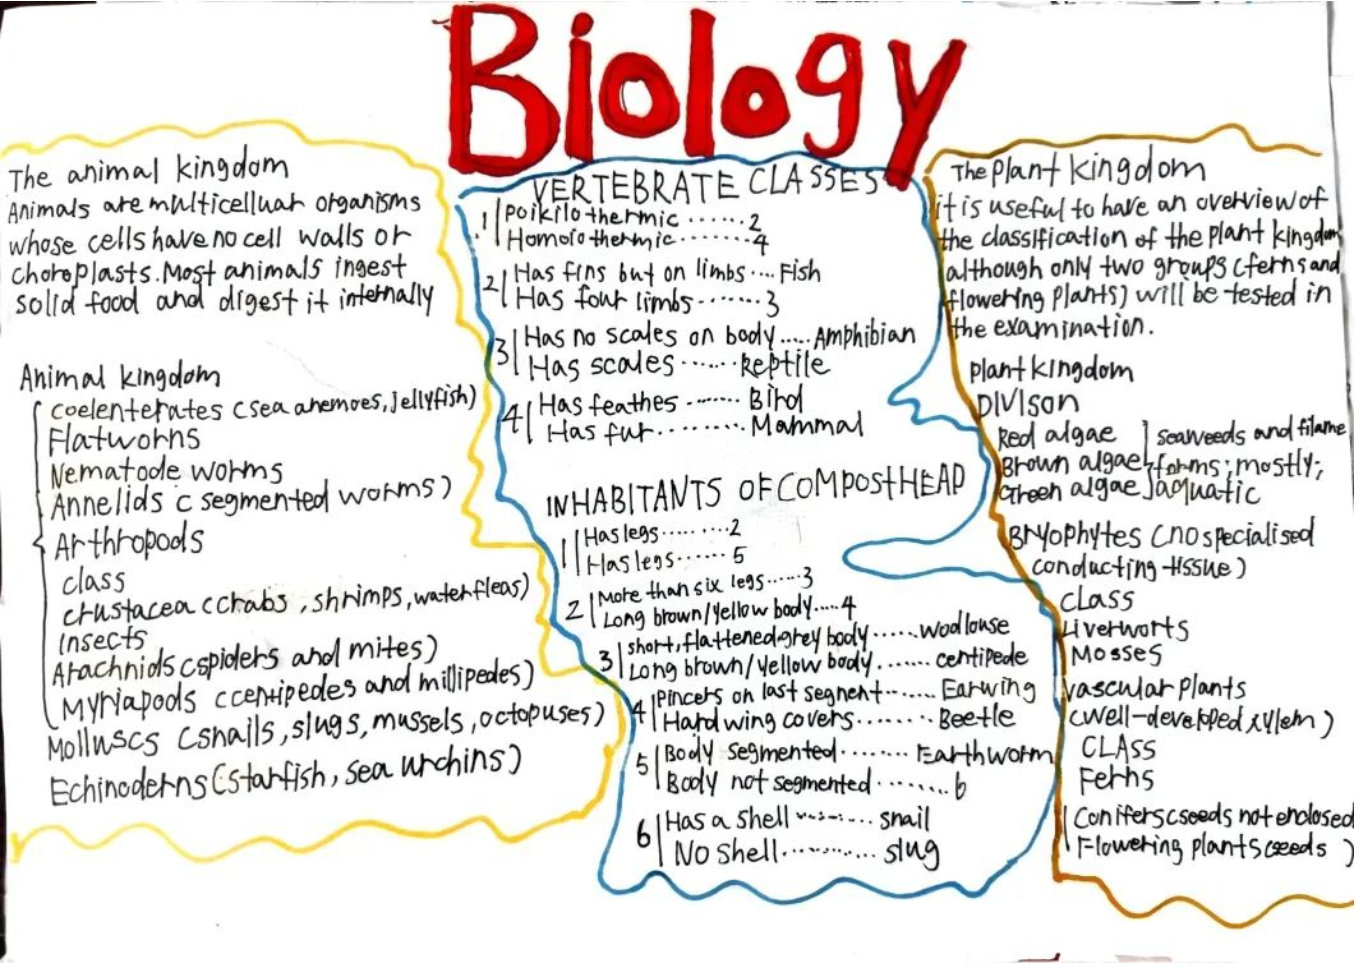 Biology
The animal kingdom
Animals are multicelluar organisms
whose cells have no cell walls or
choroplasts. Most animals ingest
solid food and digest it internally
Animal kingdom
coelenterates (sea anemoes, jellyfish)
Flatworns
Nematode worms
Annelids (segmented worms)
Arthropods
class
crustacea (crabs, shrimps, waterfleas)
Insects
Arachnids (spiders and mites)
Myriapods (centipedes and millipedes)
Molluscs (snails, slugs, mussels, octopuses)
Echinoderns (starfish, sea urchins)
VERTEBRATE CLASSES
1 Poikilothermic ....... 2
Homoiothermic ........ 4
2 Has fins but on limbs .... Fish
Has four limbs ........ 3
3 Has no scales on body ..... Amphibian
Has scales ...... Reptile
4 Has feathes ....... Bird
Has fur ......... Mammal
INHABITANTS OF COMPOST HEAP
1 Has legs ......... 2
Has legs ...... 5
2 More than six legs ..... 3
Long brown/yellow body .... 4
3 short, flattened grey body ..... wodlouse
Long brown/yellow body ....... centipede
4 Pincers on last segnent ...... Earwing
Hard wing covers ........ Beetle
5 Body segmented ........ Earthworm
Body not segmented ........ 6
6 Has a shell ........ snail
No shell ........... slug
The Plant kingdom
it is useful to have an overview of
the classification of the plant kingdom
although only two groups (ferns and
flowering plants) will be tested in
the examination.
plant kingdom
Divison
Red algae
Brown algae
Green algae
seaweeds and filame
forms; mostly;
aquatic
Bryophytes (no specialised
conducting tissue)
CLASS
Liverworts
Mosses
vascular plants
(well-developed xylem)
CLASS
Ferns
Conifers (seeds not enclosed
Flowering plants (seeds )